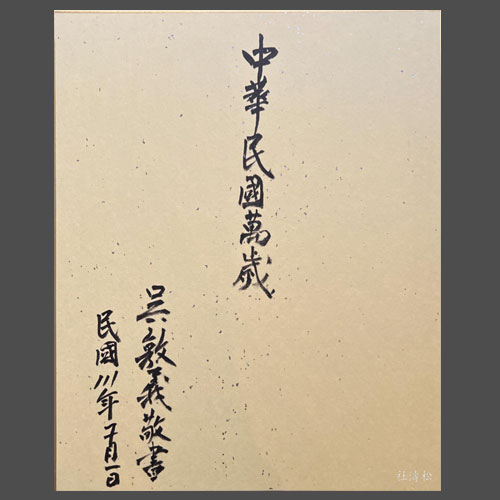 中華民國萬歲
吳敦義敬書
民國111年十月一日
杜濤松